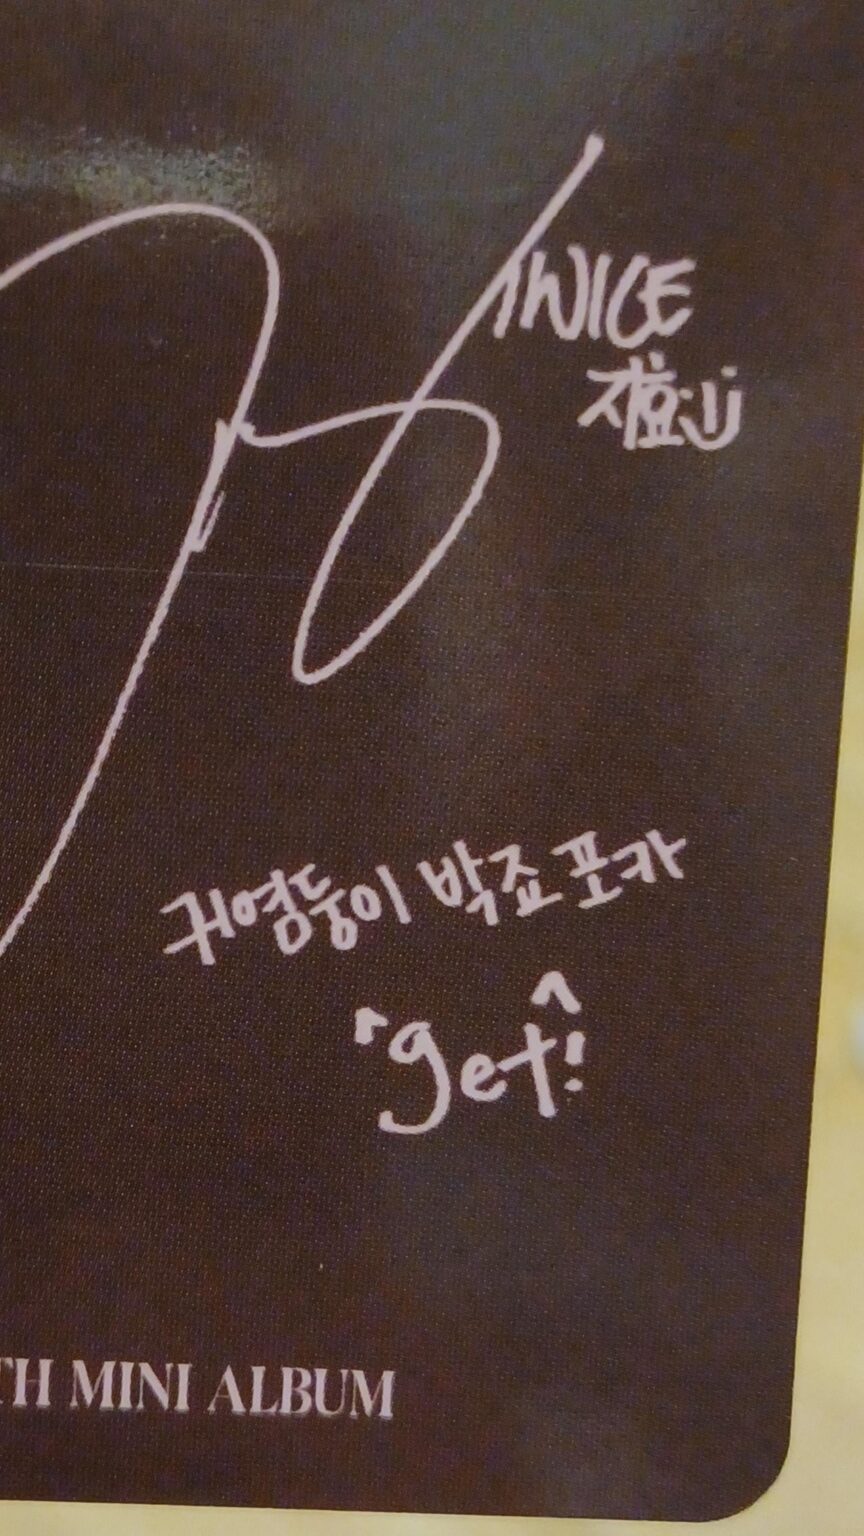 TWICE
지효
귀염둥이 박죠 포카
get!
TH MINI ALBUM